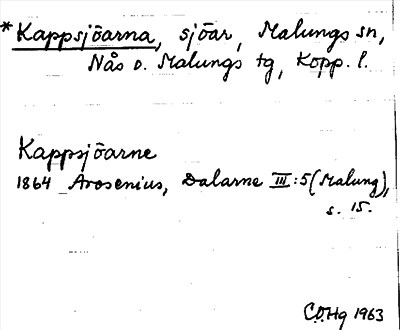 *Kappsjöarna, sjöar, Malungs sn,
Nås o. Malungs tg, Kopp. l.
Kappsjöarne
1864 Arosenius, Dalarne III:5 (Malung),
s. 15.
C.O.Hg 1963